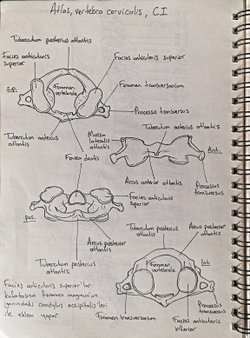 Atlas, vertebra cervicalis, C.I
Tuberculum posterius atlantis
Facies articularis superior
Facies articularis superior
Foramen vertebrale
Foramen transversarium
Sup.
Processus transversus
Tuberculum anterius atlantis
Massa lateralis atlantis
Tuberculum anterius atlantis
Fovea dentis
Ant.
Arcus anterior atlantis
Processus transversus
Facies articularis superior
pos.
Tuberculum posterius atlantis
Arcus posterior atlantis
Arcus posterior atlantis
Foramen vertebrale
Inf.
Tuberculum posterius atlantis
Facies articularis superior'lar
kafatasının foramen magnum'un
yanındaki condylus occipitalis'leri
ile eklem yapar.
Processus transversus
Foramen transversarium
Facies articularis inferior